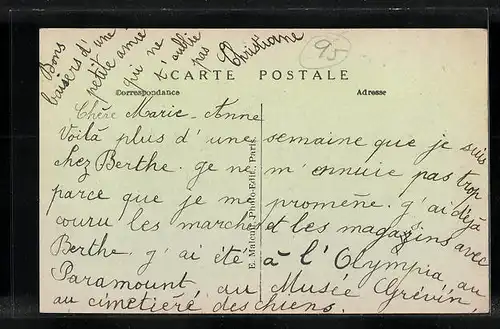 Bons
baisers d'une
petite amie
qui ne
t'oublie
pas
Christiane
95
CARTE POSTALE
Correspondance
Adresse
Chère Marie-Anne
Voilà plus d'une semaine que je suis
chez Berthe. je ne m'ennuie pas trop
parce que je me promène. j'ai déjà
couru les marchés et les magazins avec
Berthe. j'ai été à l'Olympia, au
Paramount, au Musée Grévin,
au cimetière des chiens.
E. Malcuit, Photo-Edit., Paris